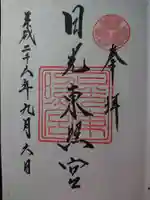 奉拝
日光東照宮
平成二十八年九月六日